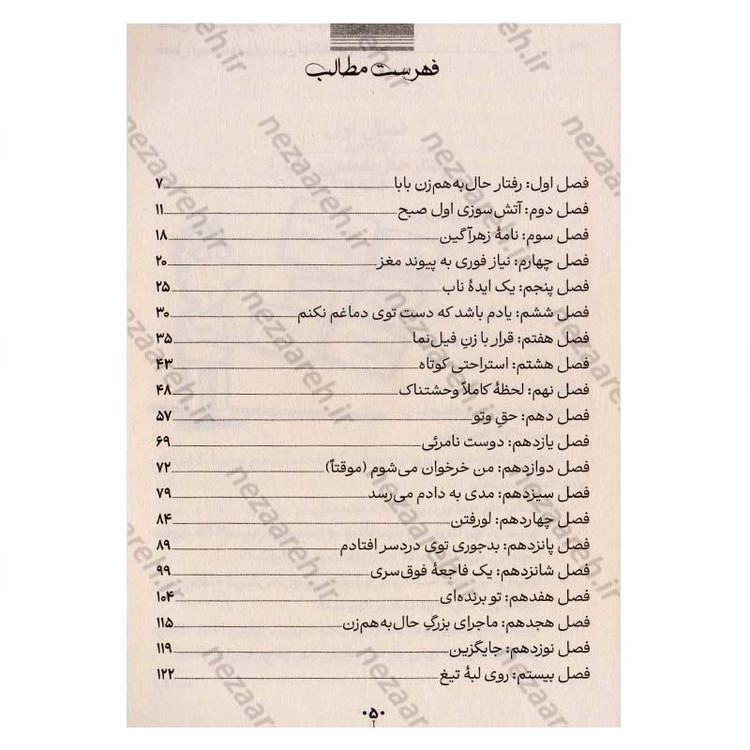 فهرست مطالب
فصل اول: رفتار حال‌به‌هم‌زن بابا ۷
فصل دوم: آتش‌سوزی اول صبح ۱۱
فصل سوم: نامهٔ زهرآگین ۱۸
فصل چهارم: نیاز فوری به پیوند مغز ۲۰
فصل پنجم: یک ایدهٔ ناب ۲۵
فصل ششم: یادم باشد که دست توی دماغم نکنم ۳۰
فصل هفتم: قرار با زنِ فیل‌نما ۳۵
فصل هشتم: استراحتی کوتاه ۴۳
فصل نهم: لحظهٔ کاملاً وحشتناک ۴۸
فصل دهم: حقِ وتو ۵۷
فصل یازدهم: دوست نامرئی ۶۹
فصل دوازدهم: من خرخوان می‌شوم (موقتاً) ۷۲
فصل سیزدهم: مدی به دادم می‌رسد ۷۹
فصل چهاردهم: لورفتن ۸۴
فصل پانزدهم: بدجوری توی دردسر افتادم ۸۹
فصل شانزدهم: یک فاجعهٔ فوق‌سری ۹۹
فصل هفدهم: تو برنده‌ای ۱۰۴
فصل هجدهم: ماجرای بزرگِ حال‌به‌هم‌زن ۱۱۵
فصل نوزدهم: جایگزین ۱۱۹
فصل بیستم: روی لبهٔ تیغ ۱۲۲
۵
nezaareh.ir